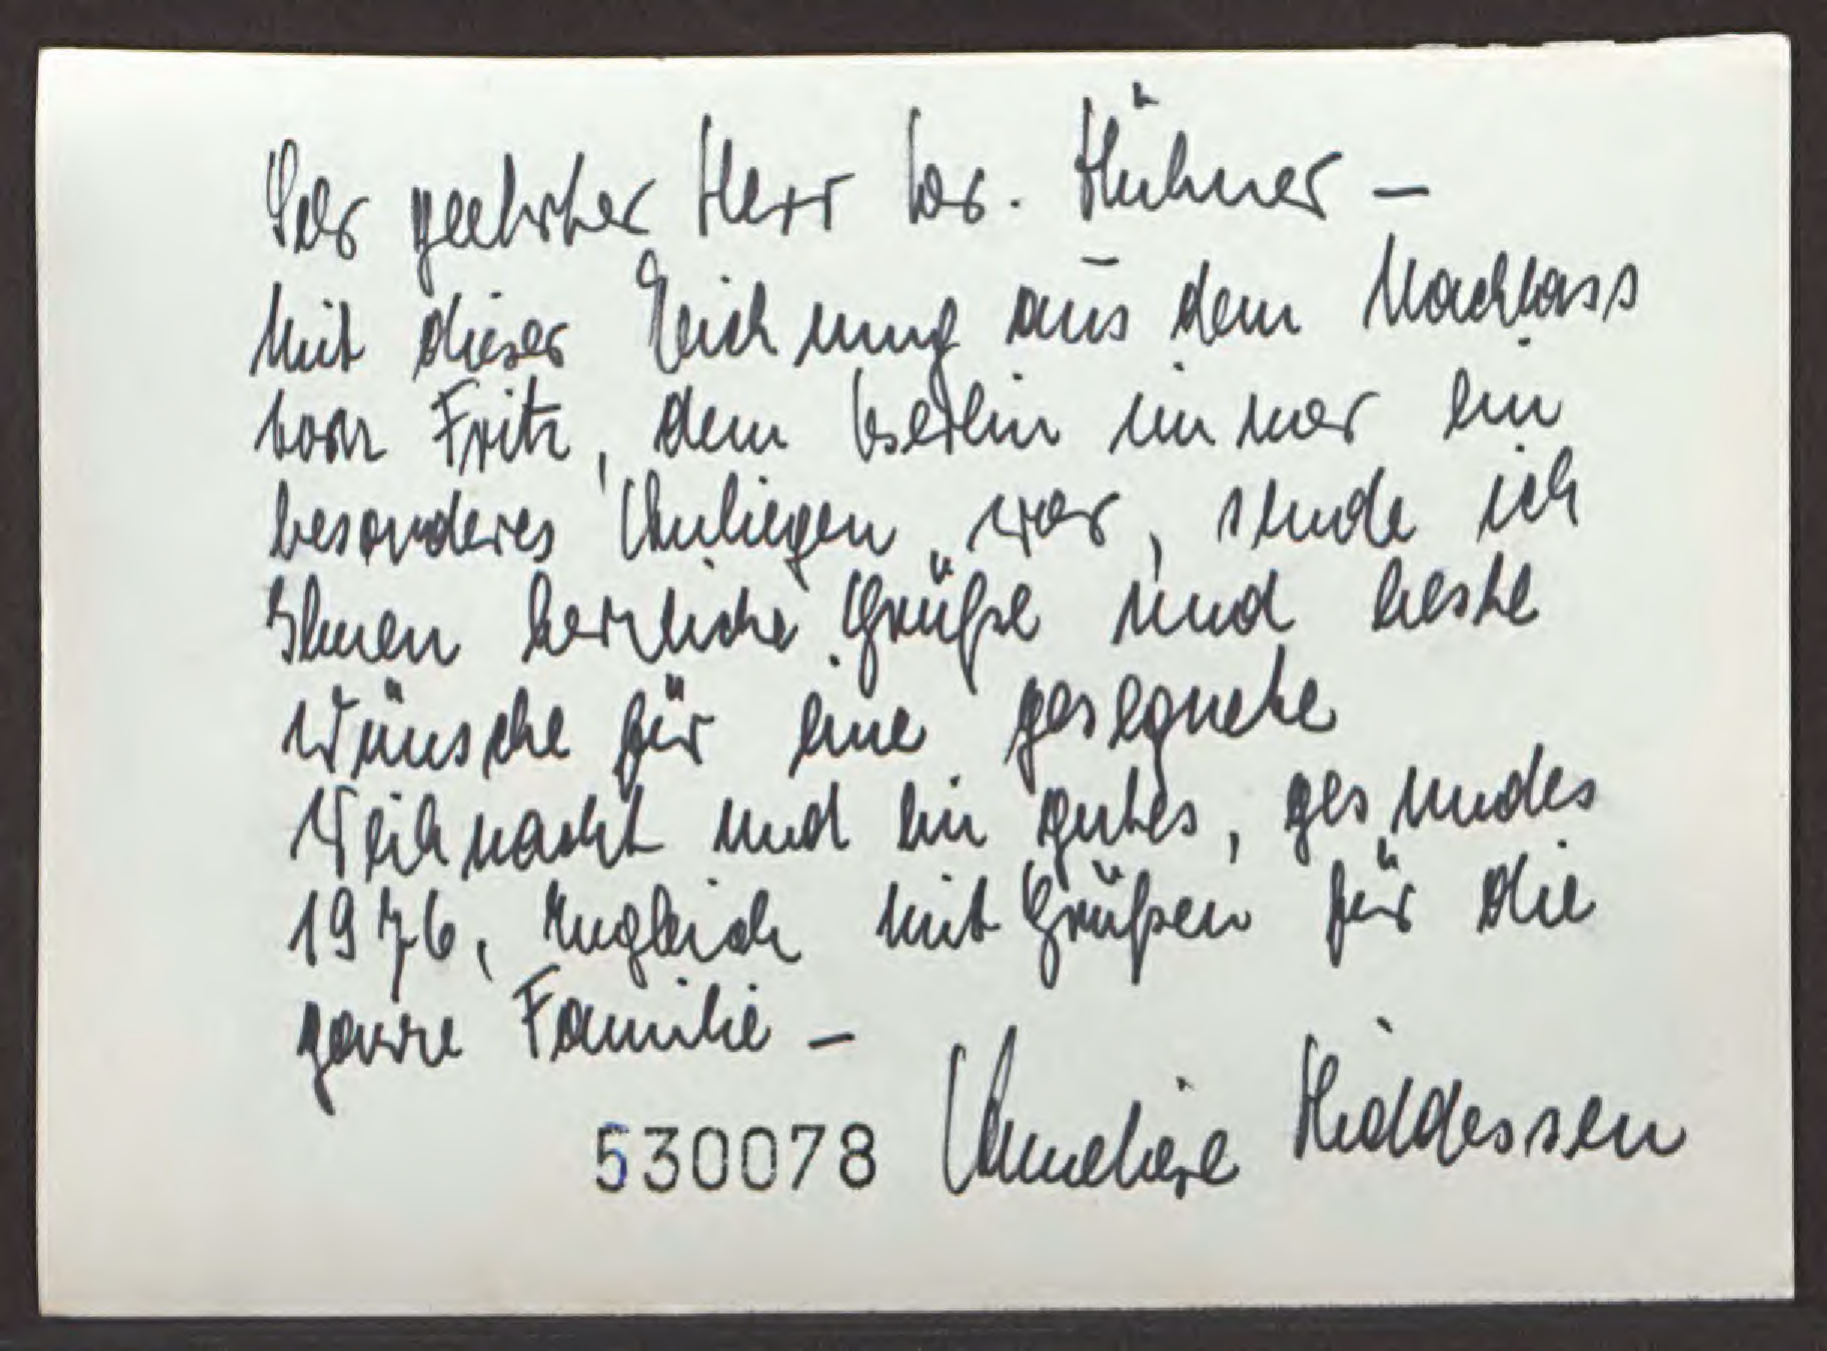 Sehr geehrter Herr Dr. Hühner –
mit dieser Zeichnung aus dem Nachlass
von Fritz, dem Berlin immer ein
besonderes Anliegen war, sende ich
Ihnen herzliche Grüße und beste
Wünsche für eine gesegnete
Weihnacht und ein gutes, gesundes
1976, zugleich mit Grüßen für die
ganze Familie –
530078 Anneliese Hiddessen